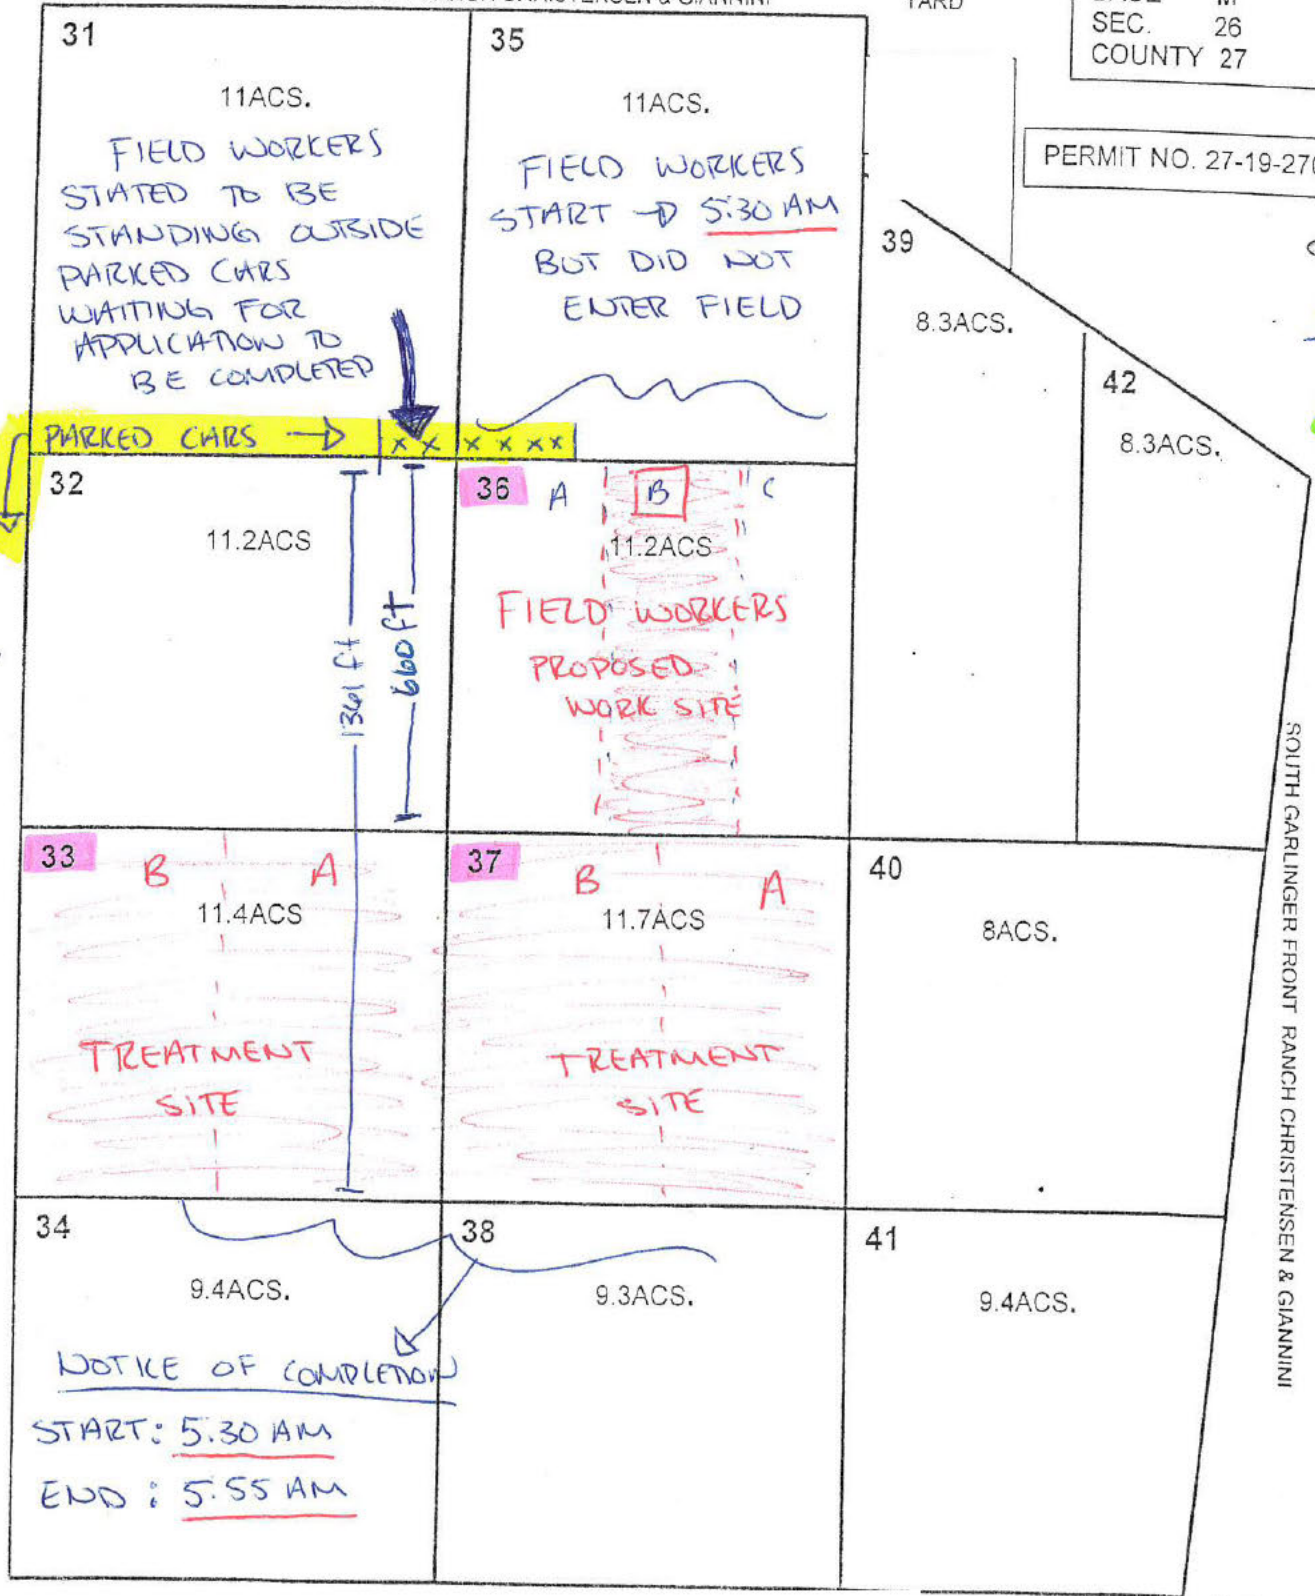 YARD
SEC. 26
COUNTY 27
PERMIT NO. 27-19-270
31
11ACS.
FIELD WORKERS
STATED TO BE
STANDING OUTSIDE
PARKED CARS
WAITING FOR
APPLICATION TO
BE COMPLETED
35
11ACS.
FIELD WORKERS
START → 5:30 AM
BUT DID NOT
ENTER FIELD
39
8.3ACS.
42
8.3ACS.
PARKED CARS → x x x x x x
32
11.2ACS
1361 ft
660 ft
36 A B C
11.2ACS
FIELD WORKERS
PROPOSED
WORK SITE
33 B A
11.4ACS
TREATMENT
SITE
37 B A
11.7ACS
TREATMENT
SITE
40
8ACS.
34
9.4ACS.
NOTICE OF COMPLETION
START: 5:30 AM
END: 5:55 AM
38
9.3ACS.
41
9.4ACS.
SOUTH GARLINGER FRONT RANCH CHRISTENSEN & GIANNINI